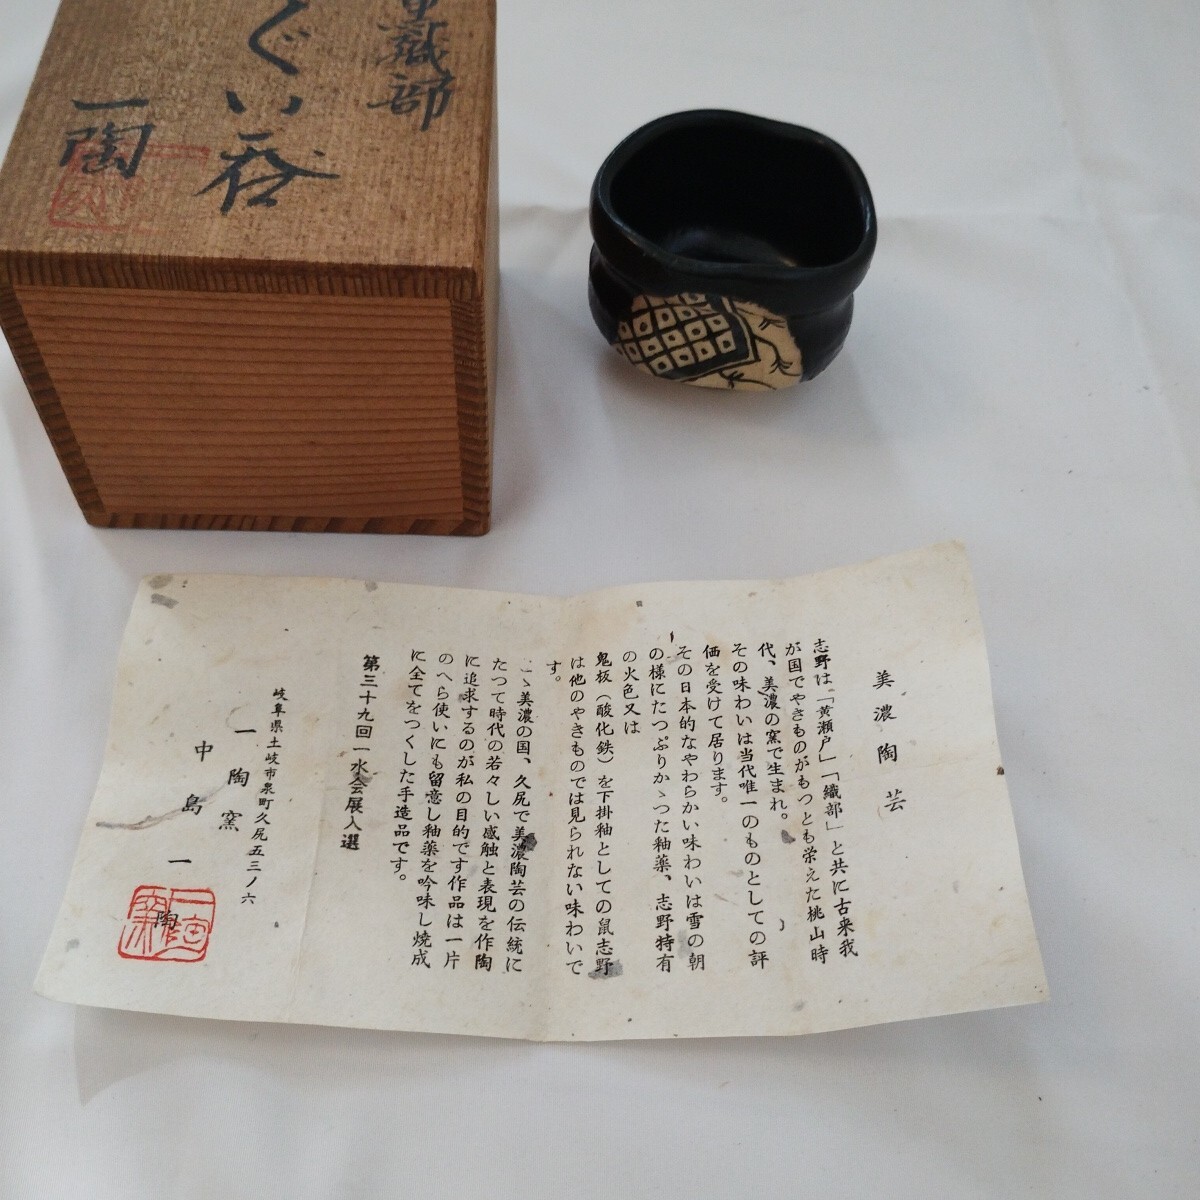 黒織部
ぐい呑
一陶
美濃陶芸
志野は「黄瀬戸」「織部」と共に古来我
が国でやきものがもつとも栄えた桃山時
代、美濃の窯で生まれ。
その味わいは当代唯一のものとしての評
価を受けて居ります。
その日本的なやわらかい味わいは雪の朝
の様にたつぷりかゝつた釉薬、志野特有
の火色又は
鬼板（酸化鉄）を下掛釉としての鼠志野
は他のやきものでは見られない味わいで
す。
美濃の国、久尻で美濃陶芸の伝統に
たつて時代の若々しい感触と表現を作陶
に追求するのが私の目的です作品は一片
のへら使いにも留意し釉薬を吟味し焼成
に全てをつくした手造品です。
第三十九回一水会展入選
岐阜県土岐市泉町久尻五三ノ六
一陶窯
中島一陶